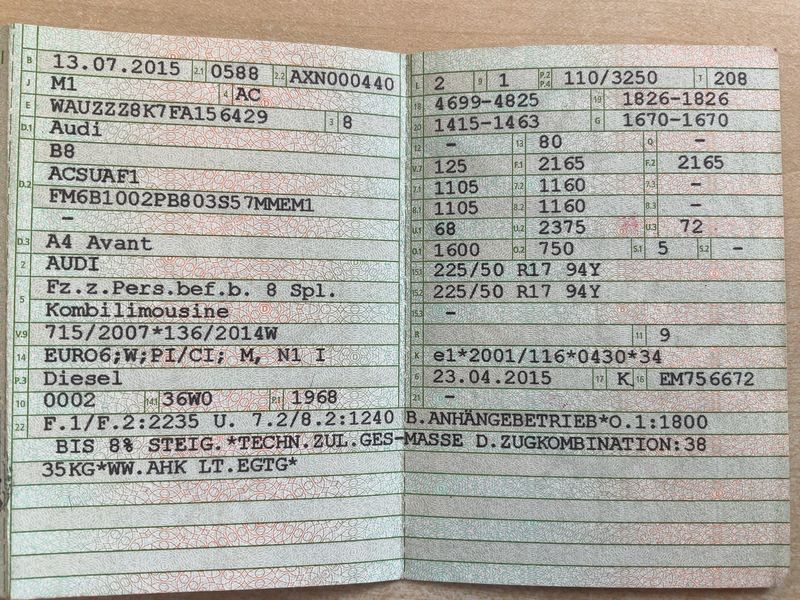 B 13.07.2015 2.1 0588 2.2 AXN000440
J M1 4 AC
E WAUZZZ8K7FA156429 3 8
D.1 Audi
B8
D.2 ACSUAF1
FM6B1002PB803S57MMEM1
–
D.3 A4 Avant
2 AUDI
5 Fz.z.Pers.bef.b. 8 Spl.
Kombilimousine
V.9 715/2007*136/2014W
14 EURO6;W;PI/CI; M, N1 I
P.3 Diesel
10 0002 14.1 36W0 P.1 1968
L 2 9 1 P.2 P.4 110/3250 T 208
18 4699-4825 19 1826-1826
20 1415-1463 G 1670-1670
12 – 13 80 Q –
V.7 125 F.1 2165 F.2 2165
7.1 1105 7.2 1160 7.3 –
8.1 1105 8.2 1160 8.3 –
U.1 68 U.2 2375 U.3 72
O.1 1600 O.2 750 S.1 5 S.2 –
15.1 225/50 R17 94Y
15.2 225/50 R17 94Y
15.3 –
R 11 9
K e1*2001/116*0430*34
6 23.04.2015 17 K 16 EM756672
21 –
22 F.1/F.2:2235 U. 7.2/8.2:1240 B.ANHÄNGEBETRIEB*O.1:1800
BIS 8% STEIG.*TECHN.ZUL.GES-MASSE D.ZUGKOMBINATION:38
35KG*WW.AHK LT.EGTG*